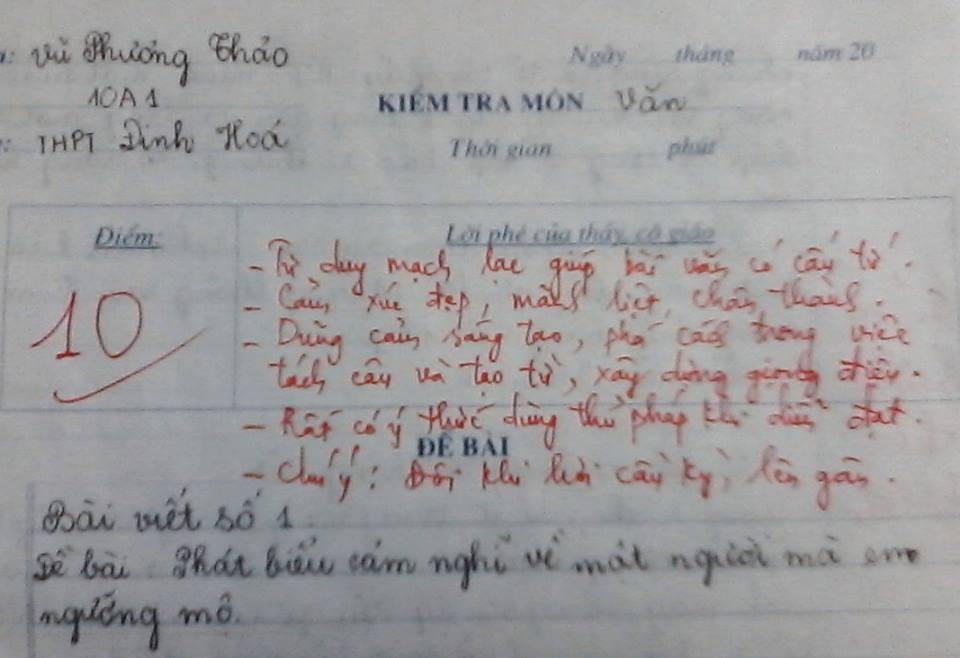 : Vũ Phương Thảo
Ngày tháng năm 20
10A1
KIỂM TRA MÔN Văn
: THPT Định Hoá
Thời gian phút
Điểm:
Lời phê của thầy, cô giáo
10
- Tư duy mạch lạc giúp bài văn có cấu tứ.
- Cảm xúc đẹp, mãnh liệt, chân thành.
- Dũng cảm sáng tạo, phá cách trong việc
tách câu và tạo từ, xây dựng giọng điệu.
- Rất có ý thức dùng thủ pháp khi diễn đạt.
ĐỀ BÀI
- Chú ý: Đôi khi hơi cầu kỳ, lên gân.
Bài viết số 1
Đề bài. Phát biểu cảm nghĩ về một người mà em
ngưỡng mộ.